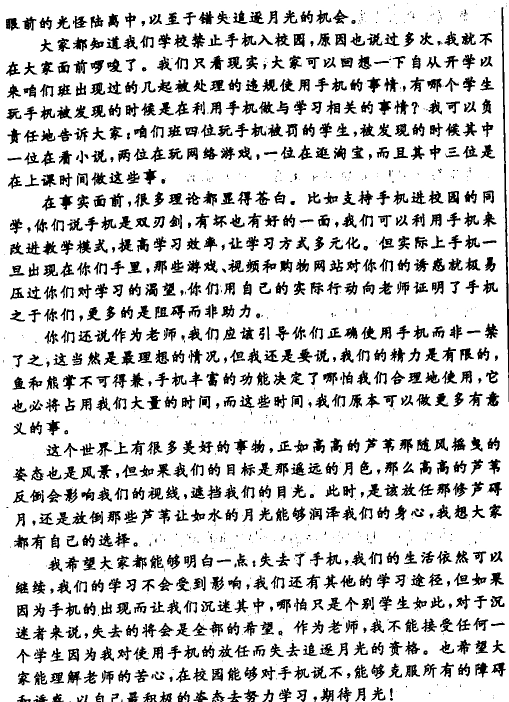 眼前的光怪陆离中,以至于错失追逐月光的机会。
大家都知道我们学校禁止手机入校园,原因也说过多次,我就不
在大家面前啰唆了。我们只看现实,大家可以回想一下自从开学以
来咱们班出现过的几起被处理的违规使用手机的事情,有哪个学生
玩手机被发现的时候是在利用手机做与学习相关的事情?我可以负
责任地告诉大家:咱们班四位玩手机被罚的学生,被发现的时候其中
一位在看小说,两位在玩网络游戏,一位在逛淘宝,而且其中三位是
在上课时间做这些事。
在事实面前,很多理论都显得苍白。比如支持手机进校园的同
学,你们说手机是双刃剑,有坏也有好的一面,我们可以利用手机来
改进教学模式,提高学习效率,让学习方式多元化。但实际上手机一
旦出现在你们手里,那些游戏、视频和购物网站对你们的诱惑就极易
压过你们对学习的渴望,你们用自己的实际行动向老师证明了手机
之于你们,更多的是阻碍而非助力。
你们还说作为老师,我们应该引导你们正确使用手机而非一禁
了之,这当然是最理想的情况,但我还是要说,我们的精力是有限的,
鱼和熊掌不可得兼,手机丰富的功能决定了哪怕我们合理地使用,它
也必将占用我们大量的时间,而这些时间,我们原本可以做更多有意
义的事。
这个世界上有很多美好的事物,正如高高的芦苇那随风摇曳的
姿态也是风景,但如果我们的目标是那遥远的月色,那么高高的芦苇
反倒会影响我们的视线,遮挡我们的目光。此时,是该放任那修芦碍
月,还是放倒那些芦苇让如水的月光能够润泽我们的身心,我想大家
都有自己的选择。
我希望大家都能够明白一点:失去了手机,我们的生活依然可以
继续,我们的学习不会受到影响,我们还有其他的学习途径,但如果
因为手机的出现而让我们沉迷其中,哪怕只是个别学生如此,对于沉
迷者来说,失去的将会是全部的希望。作为老师,我不能接受任何一
个学生因为我对使用手机的放任而失去追逐月光的资格。也希望大
家能理解老师的苦心,在校园能够对手机说不,能够克服所有的障碍
和诱惑,以自己最积极的姿态去努力学习,期待月光!